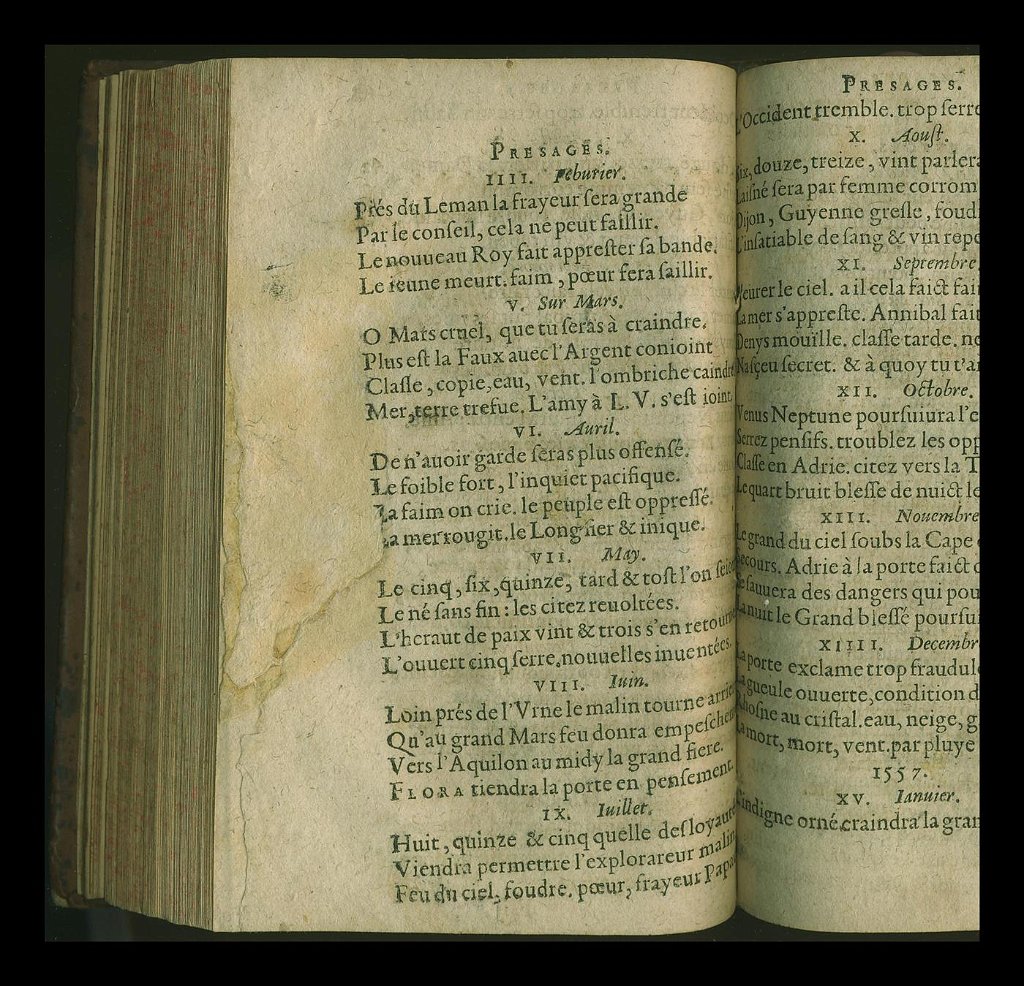 PRESAGES.
IIII. Feburier.
Prés du Leman la frayeur ſera grande
Par le conſeil, cela ne peut faillir.
Le nouueau Roy fait appreſter ſa bande.
Le ieune meurt. faim, pœur fera ſaillir.
V. Sur Mars.
O Mars cruel, que tu ſeras à craindre.
Plus eſt la Faux auec l'Argent conioint
Claſſe, copie, eau, vent. l'ombriche caindre
Mer, terre trefue. L'amy à L. V. s'eſt ioint.
VI. Auril.
De n'auoir garde ſeras plus offenſé.
Le foible fort, l'inquiet pacifique.
La faim on crie. le peuple eſt oppreſſé.
La mer rougit. le Long fier & inique.
VII. May.
Le cinq, ſix, quinze, tard & toſt l'on
Le né ſans fin: les citez reuoltées.
L'heraut de paix vint & trois s'en retourne
L'ouuert cinq ſerre, nouuelles inuentées.
VIII. Iuin.
Loin prés de l'Vrne le malin tourne
Qu'au grand Mars feu donra
Vers l'Aquilon au midy la grand fiere.
FLORA tiendra la porte en penſement.
IX. Iuillet.
Huit, quinze & cinq quelle deſloyauté
Viendra permettre l'explorareur malin
Feu du ciel, foudre. pœur, frayeur
PRESAGES.
L'Occident tremble. trop ſerre
X. Aouſt.
Six, douze, treize, vint parlera
Laiſné ſera par femme corrom
Dijon, Guyenne greſle, foud
L'inſatiable de ſang & vin repe
XI. Septembre.
Pleurer le ciel. a il cela faict fai
La mer s'appreſte. Annibal fait
Denys mouïlle. claſſe tarde. ne
N'aſçeu ſecret. & à quoy tu t'a
XII. Octobre.
Venus Neptune pourſuiura l'e
Serrez penſifs. troublez les opp
Claſſe en Adrie. citez vers la T
Le quart bruit bleſſe de nuict le
XIII. Nouembre
Le grand du ciel ſoubs la Cape
Secours. Adrie à la porte faict
Se ſauuera des dangers qui pou
La nuit le Grand bleſſé pourſui
XIIII. Decembr
La porte exclame trop fraudule
La gueule ouuerte, condition d
Rhoſne au criſtal. eau, neige, g
La mort, mort, vent. par pluye
1557.
XV. Ianuier.
L'indigne orné craindra la gran